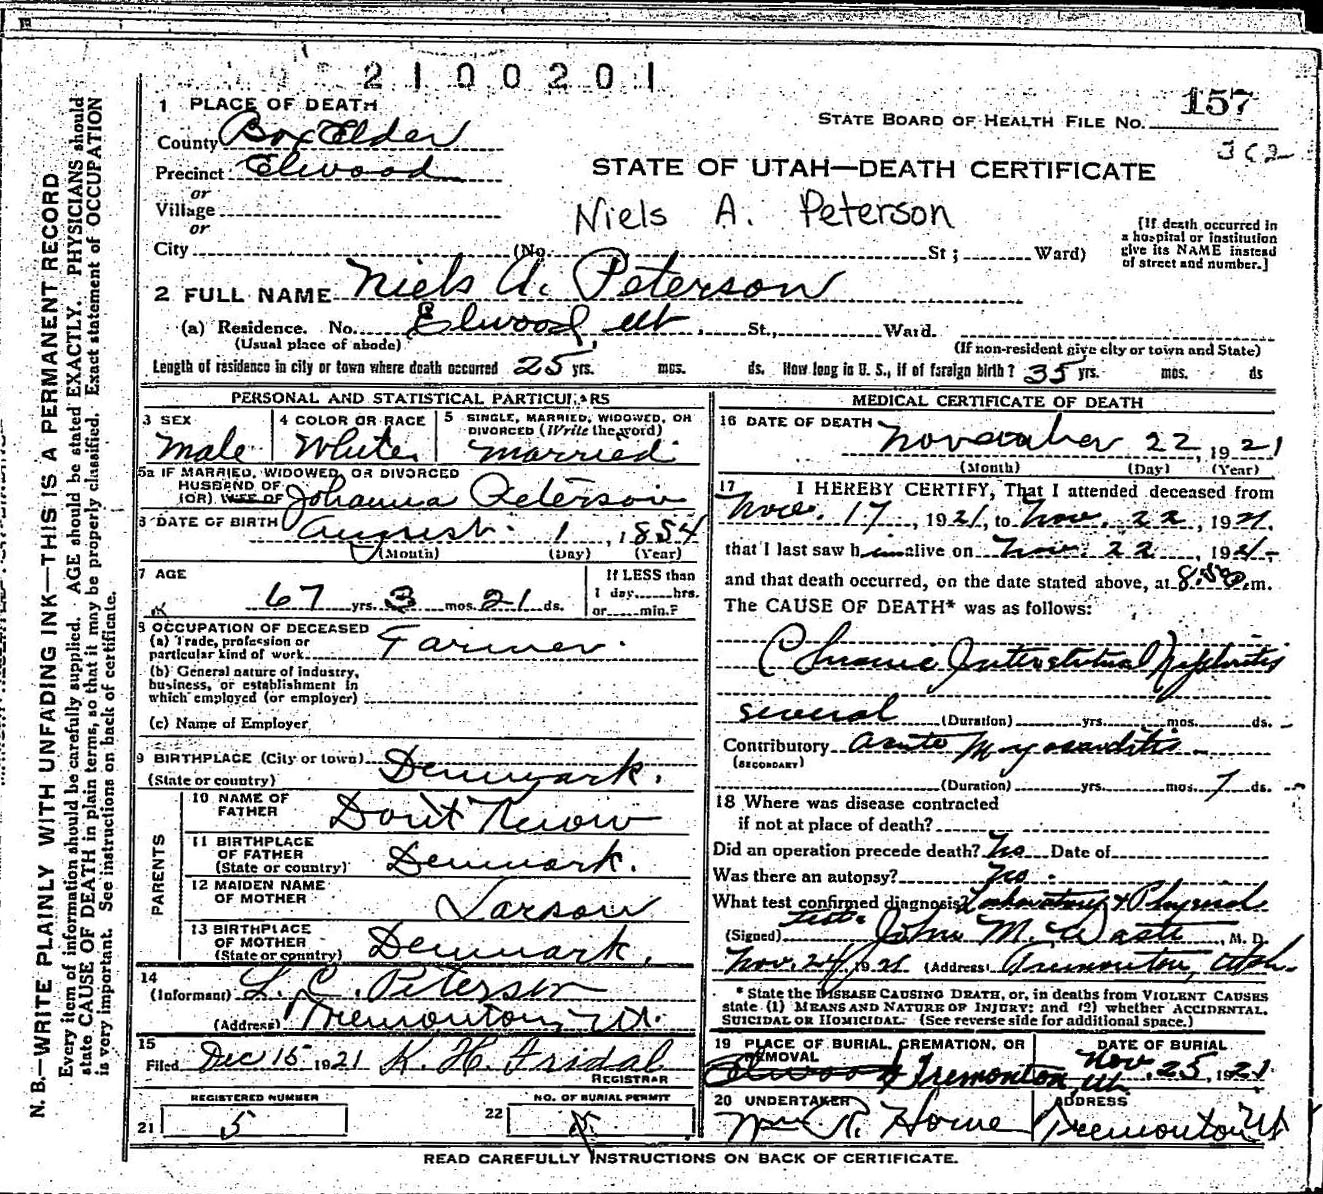 2100201
1 PLACE OF DEATH
County Box Elder
STATE BOARD OF HEALTH FILE NO. 157
362
Precinct Elwood
STATE OF UTAH—DEATH CERTIFICATE
or
Village
Niels A. Peterson
or
City (No. St; Ward)
[If death occurred in
a hospital or institution
give its NAME instead
of street and number.]
2 FULL NAME Niels A. Peterson
(a) Residence. No. Elwood, Ut St., Ward.
(Usual place of abode)
(If non-resident give city or town and State)
Length of residence in city or town where death occurred 25 yrs. mos. ds. How long in U. S., if of foreign birth? 35 yrs. mos. ds
PERSONAL AND STATISTICAL PARTICULARS
3 SEX Male
4 COLOR OR RACE White
5 SINGLE, MARRIED, WIDOWED, OR
DIVORCED (Write the word)
Married
5a IF MARRIED, WIDOWED, OR DIVORCED
HUSBAND OF
(OR) WIFE OF Johanna Peterson
6 DATE OF BIRTH August 1, 1854
(Month) (Day) (Year)
7 AGE
67 yrs. 3 mos. 21 ds.
If LESS than
1 day hrs.
or min.?
8 OCCUPATION OF DECEASED
(a) Trade, profession or
particular kind of work Farmer.
(b) General nature of industry,
business, or establishment in
which employed (or employer)
(c) Name of Employer
9 BIRTHPLACE (City or town) Denmark.
(State or country)
PARENTS
10 NAME OF
FATHER Don't Know
11 BIRTHPLACE
OF FATHER
(State or country) Denmark.
12 MAIDEN NAME
OF MOTHER Larson
13 BIRTHPLACE
OF MOTHER
(State or country) Denmark.
14
(Informant) L. C. Peterson
(Address) Tremonton, Ut.
15
Filed Dec 15 1921 K. H. Fridal
REGISTRAR
REGISTERED NUMBER
21 5
NO. OF BURIAL PERMIT
22
MEDICAL CERTIFICATE OF DEATH
16 DATE OF DEATH November 22, 1921
(Month) (Day) (Year)
17 I HEREBY CERTIFY, That I attended deceased from
Nov. 17, 1921, to Nov. 22, 1921.
that I last saw him alive on Nov. 22, 1921.
and that death occurred, on the date stated above, at 8:50 m.
The CAUSE OF DEATH* was as follows:
Chronic Interstitual Nephritis
several (Duration) yrs. mos. ds.
Contributory Acute Myocarditis
(SECONDARY)
(Duration) yrs. mos. 7 ds.
18 Where was disease contracted
if not at place of death?
Did an operation precede death? No Date of
Was there an autopsy? No.
What test confirmed diagnosis? Laboratory & Physical
tests
(Signed) John M. Waste, M. D.
Nov. 24, 1921 (Address) Tremonton, Utah.
* State the DISEASE CAUSING DEATH, or, in deaths from VIOLENT CAUSES
state (1) MEANS AND NATURE OF INJURY; and (2) whether ACCIDENTAL,
SUICIDAL OR HOMICIDAL. (See reverse side for additional space.)
19 PLACE OF BURIAL, CREMATION, OR
REMOVAL
Elwood Tremonton Ut
DATE OF BURIAL
Nov. 25, 1921
20 UNDERTAKER
Wm R. Howe
ADDRESS
Tremonton Ut
READ CAREFULLY INSTRUCTIONS ON BACK OF CERTIFICATE.
N. B.—WRITE PLAINLY WITH UNFADING INK—THIS IS A PERMANENT RECORD
Every item of information should be carefully supplied. AGE should be stated EXACTLY. PHYSICIANS should
state CAUSE OF DEATH in plain terms, so that it may be properly classified. Exact statement of OCCUPATION
is very important. See instructions on back of certificate.